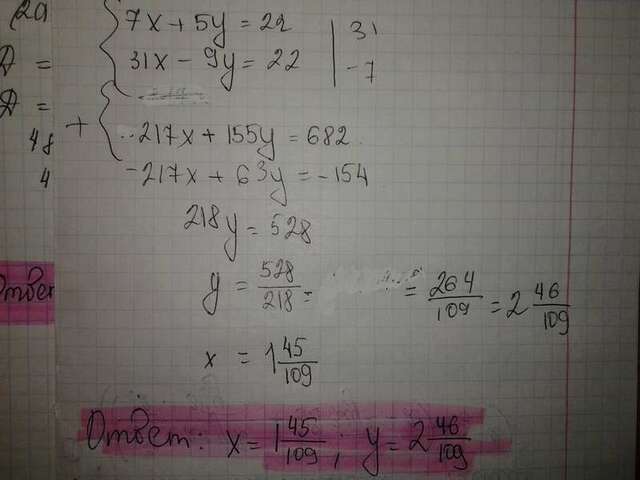 (2a
7x + 5y = 22 | 31
31x - 9y = 22 | -7
D =
D =
48
4
+ { 217x + 155y = 682
-217x + 63y = -154
218y = 528
y = 528/218 = = 264/109 = 2 46/109
x = 1 45/109
Ответ
Ответ: x = 1 45/109 ; y = 2 46/109